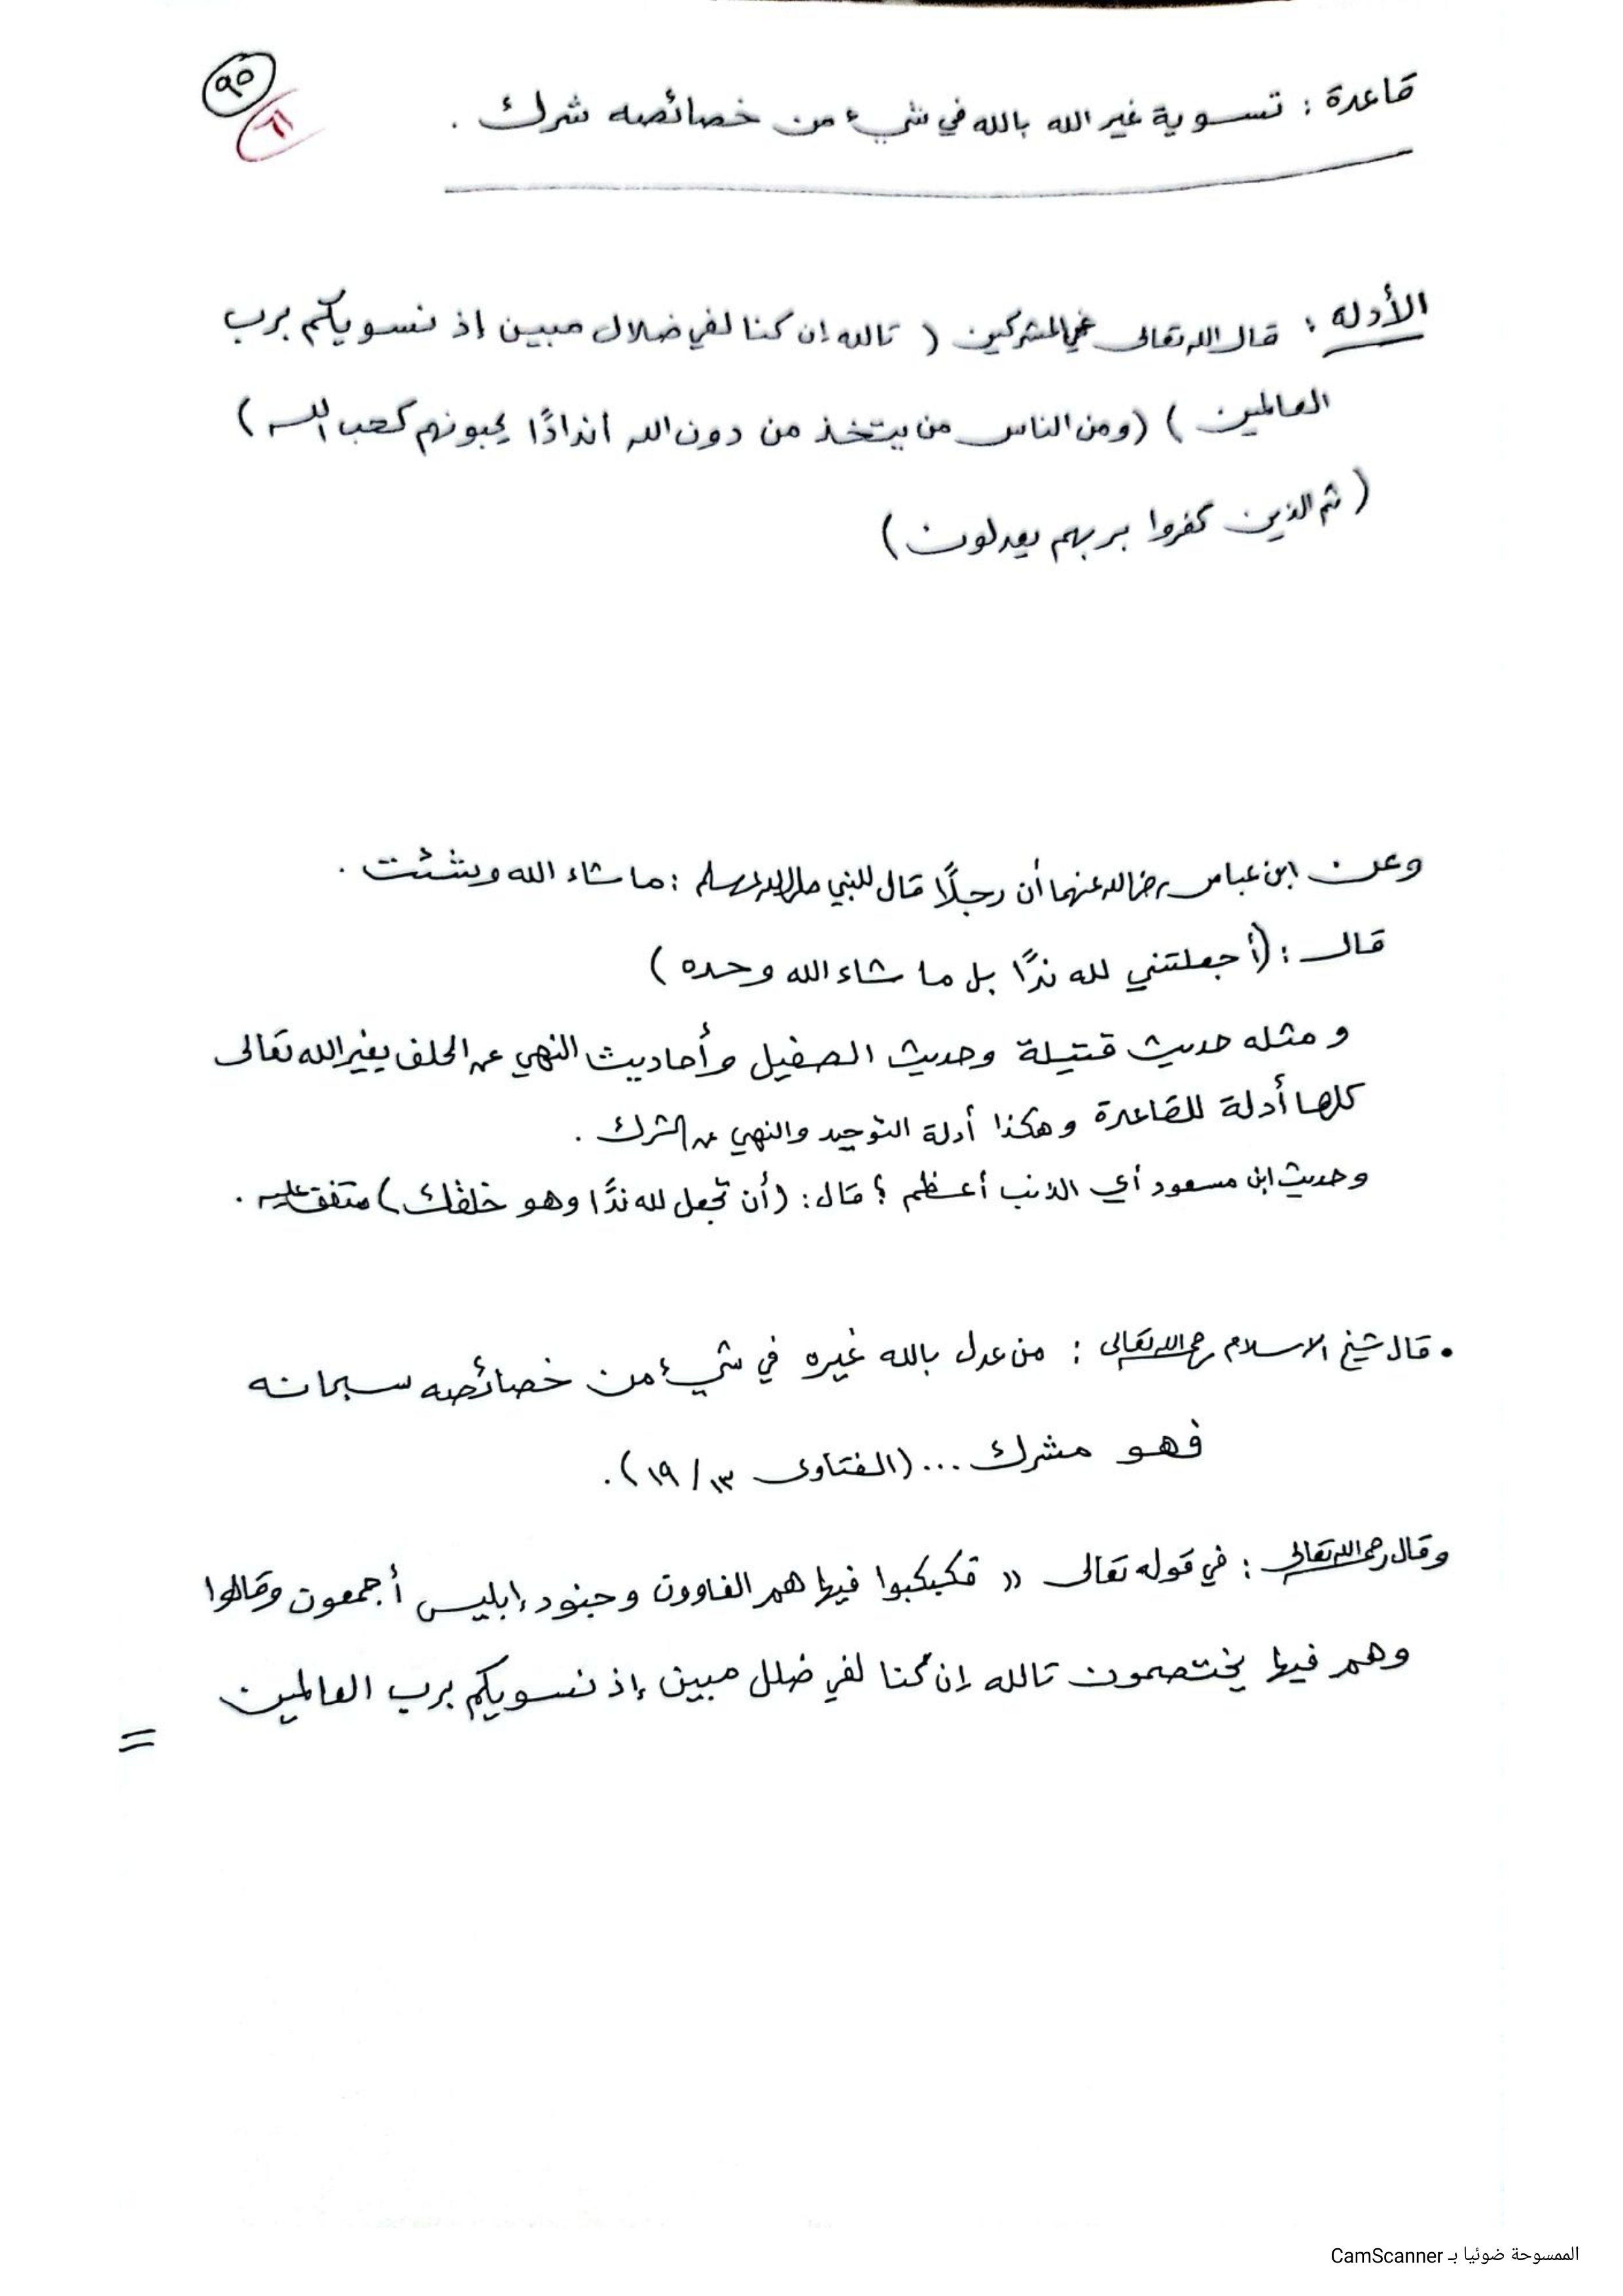 ٩٥
٦١
قاعدة : تسوية غير الله بالله في شيء من خصائصه شرك .
الأدلة : قال الله تعالى عن المشركين ( تالله إن كنا لفي ضلال مبين إذ نسويكم برب
العالمين ) (ومن الناس من يتخذ من دون الله أندادًا يحبونهم كحب الله )
( ثم الذين كفروا بربهم يعدلون )
وعن ابن عباس رضي الله عنهما أن رجلًا قال للنبي صلى الله عليه وسلم : ما شاء الله وشئت .
قال : (أجعلتني لله ندًا بل ما شاء الله وحده )
ومثله حديث قتيلة وحديث الطفيل وأحاديث النهي عن الحلف بغير الله تعالى
كلها أدلة للقاعدة وهكذا أدلة التوحيد والنهي عن الشرك .
وحديث ابن مسعود أي الذنب أعظم ؟ قال : (أن تجعل لله ندًا وهو خلقك ) متفق عليه .
• قال شيخ الاسلام رحمه الله تعالى : من عدل بالله غيره في شيء من خصائصه سبحانه
فهو مشرك ... (الفتاوى ١٣ / ١٩ ) .
وقال رحمه الله تعالى : في قوله تعالى (( فكبكبوا فيها هم الغاوون وجنود إبليس أجمعون وقالوا
وهم فيها يختصمون تالله إن كنا لفي ضلل مبين إذ نسويكم برب العالمين
=
الممسوحة ضوئيا بـ CamScanner